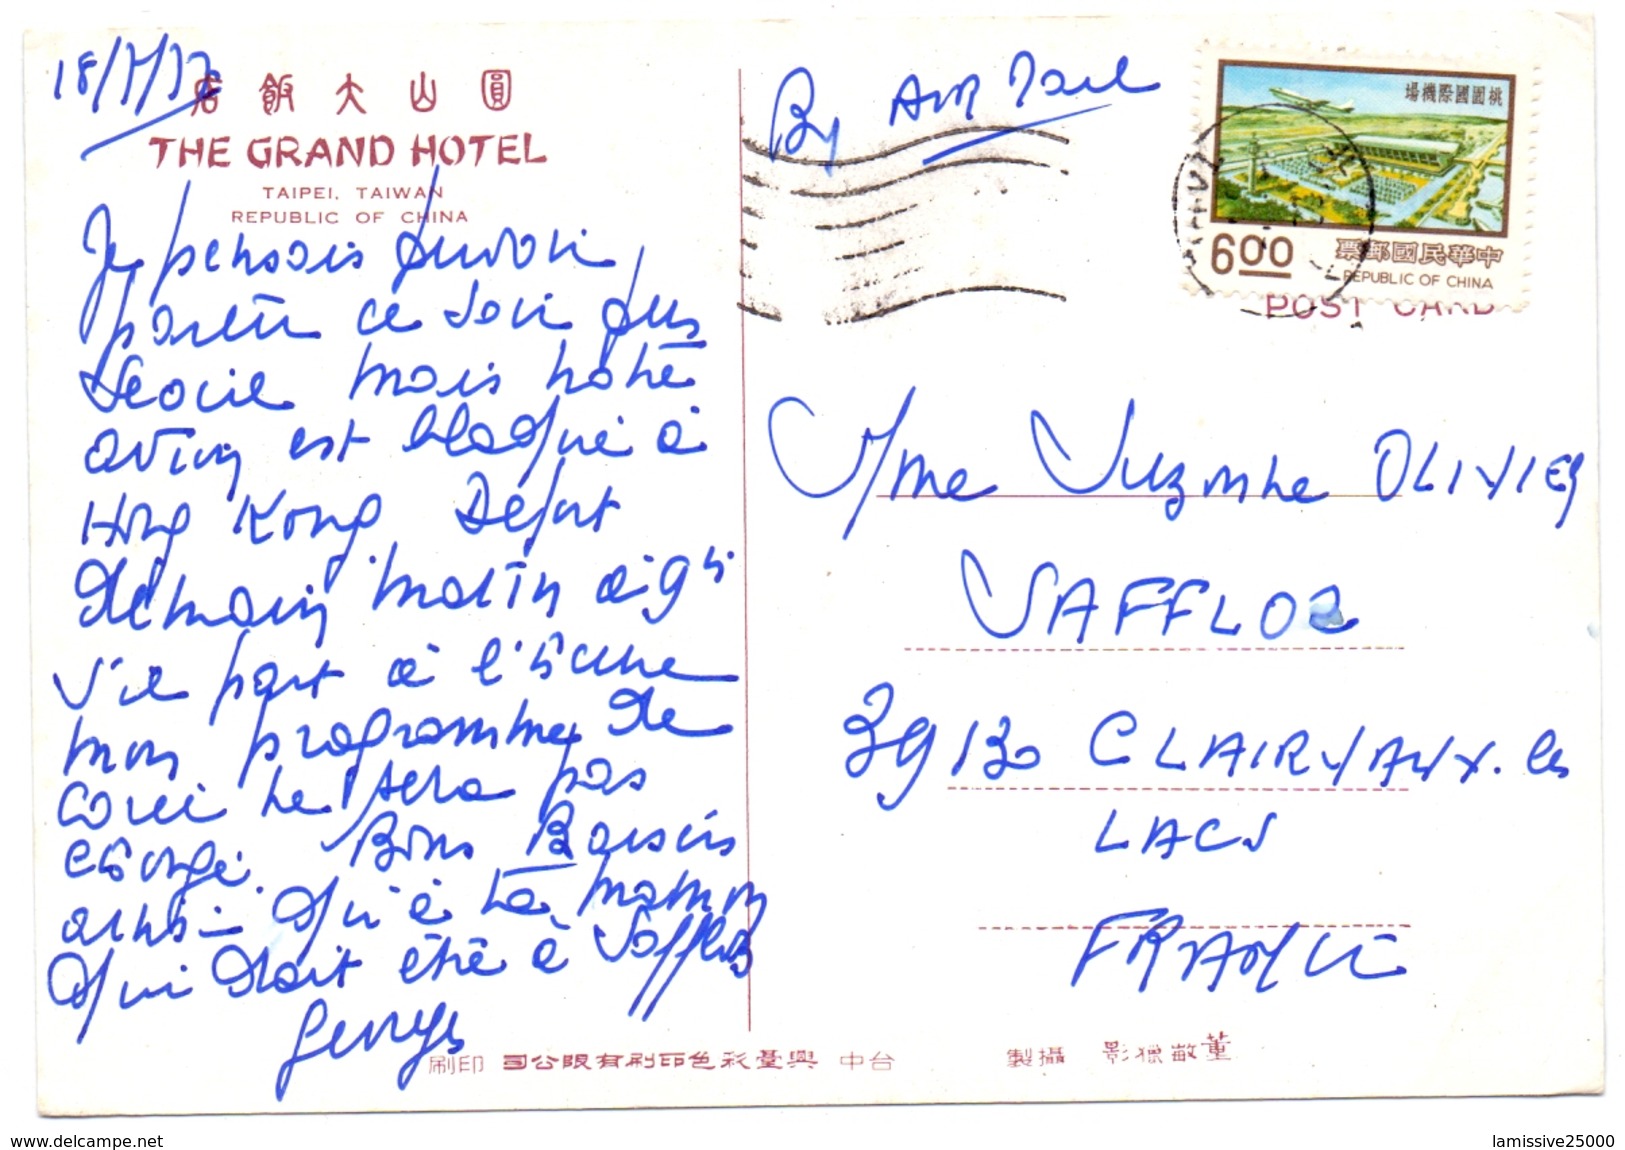 18/7/77
店飯大山圓
THE GRAND HOTEL
TAIPEI, TAIWAN
REPUBLIC OF CHINA
Je pensais pouvoir
partir ce soir pour
Séoul mais notre
avion est bloqué à
Hong Kong Départ
demain matin à 9h
s'il part à l'heure
mon programme de
ne sera pas
changé. Bons Baisers
ainsi qu'à ta maman
qui doit être à Saffloz
Georges
By Air Mail
場機際國園桃
6.00
票郵國民華中
REPUBLIC OF CHINA
POST CARD
Mme Suzanne OLIVIER
SAFFLOZ
39130 CLAIRVAUX. les
LACS
FRANCE
刷印 司公限有刷印色彩臺興 中台
製攝 影獵敏董
www.delcampe.net
lamissive25000